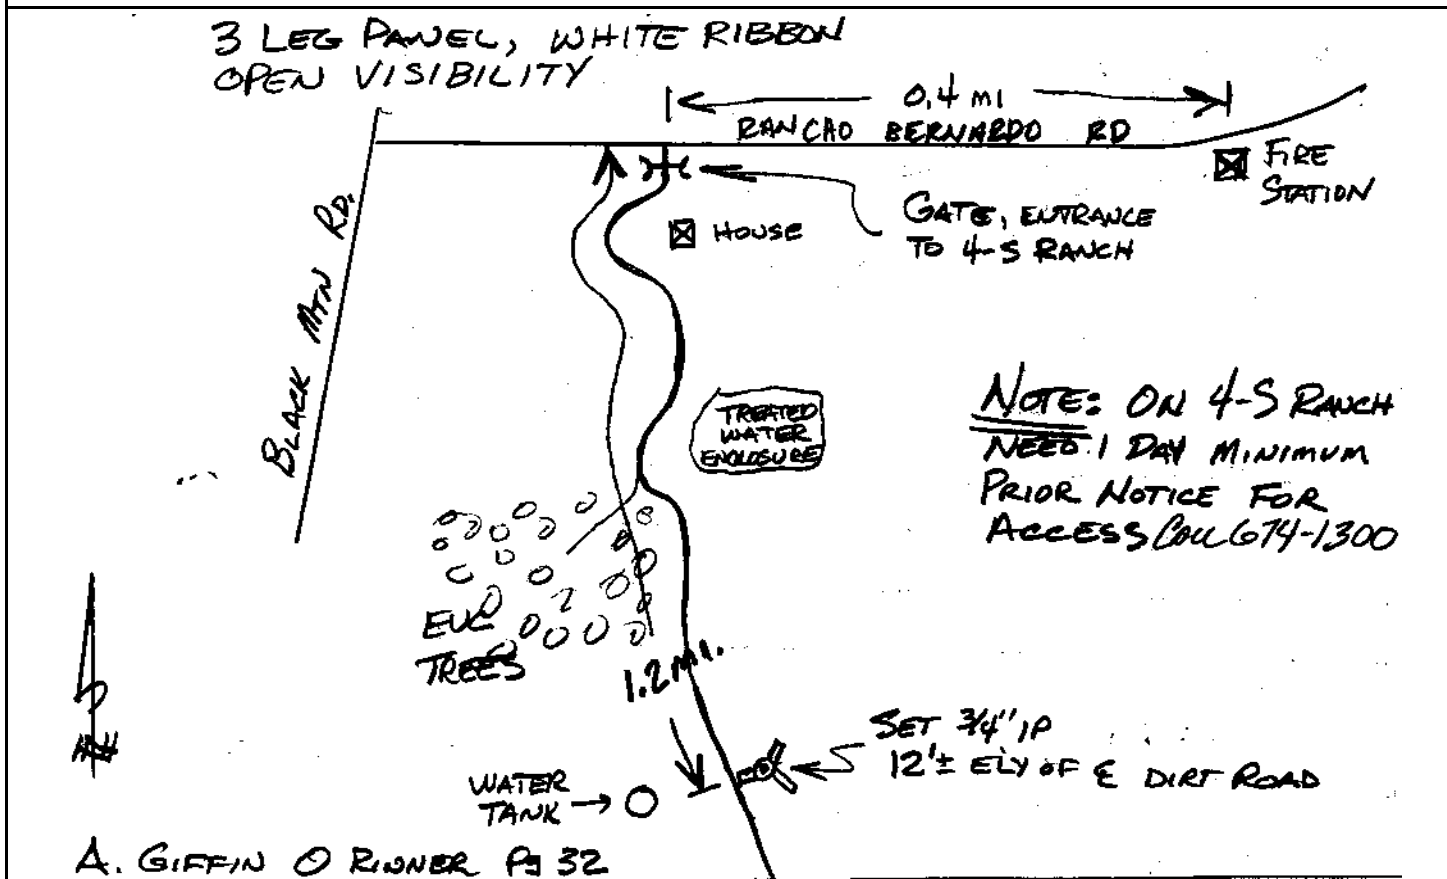 3 LEG PANEL, WHITE RIBBON
OPEN VISIBILITY
0.4 MI
RANCHO BERNARDO RD
FIRE
STATION
GATE, ENTRANCE
TO 4-S RANCH
HOUSE
BLACK MTN RD.
TREATED
WATER
ENCLOSURE
NOTE: ON 4-S RANCH
NEED 1 DAY MINIMUM
PRIOR NOTICE FOR
ACCESS Call 674-1300
EUC
TREES
1.2 MI.
SET 3/4" IP
12'± ELY OF ℄ DIRT ROAD
WATER
TANK
A. GIFFIN
Pg 32